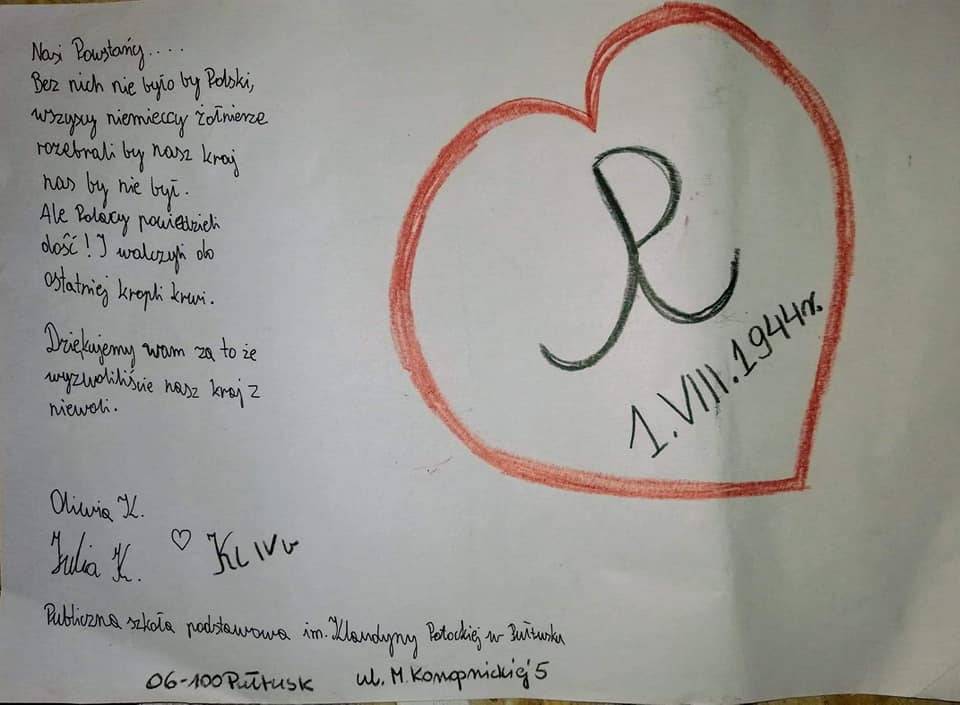 Nasi Powstańcy....
Bez nich nie było by Polski,
wszyscy niemieccy żołnierze
rozebrali by nasz kraj
nas by nie był.
Ale Polacy powiedzieli
dość! I walczyli do
ostatniej kropli krwi.
Dziękujemy wam za to że
wyzwoliliście nasz kraj z
niewoli.
1.VIII.1944r.
Oliwia K.
Julia K. ♡ Kl IV
Publiczna szkoła podstawowa im. Klaudyny Potockiej w Pułtusku
06-100 Pułtusk ul. M. Konopnickiej 5